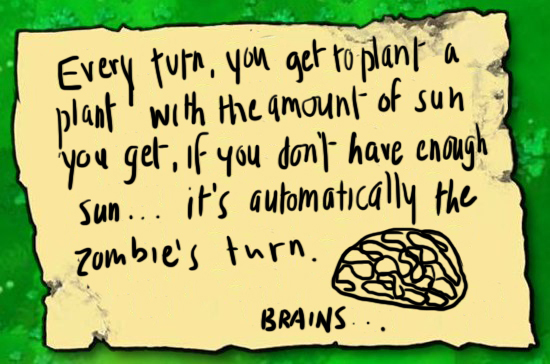 Every turn, you get to plant a
plant with the amount of sun
you get, if you don't have enough
sun... it's automatically the
zombie's turn.
BRAINS...